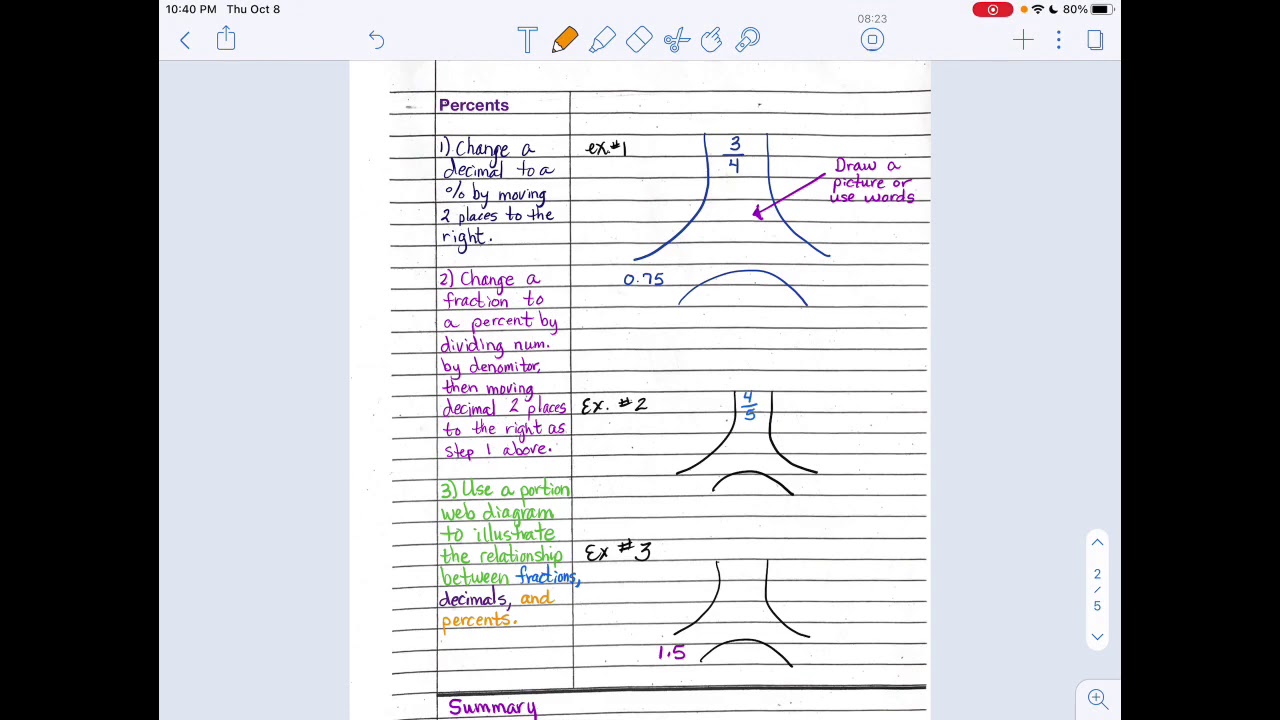 10:40 PM Thu Oct 8
80%
08:23
T
Percents
1) Change a
decimal to a
% by moving
2 places to the
right.
2) Change a
fraction to
a percent by
dividing num.
by denomitor,
then moving
decimal 2 places
to the right as
step 1 above.
3) Use a portion
web diagram
to illustrate
the relationship
between fractions,
decimals, and
percents.
ex.#1
3
4
Draw a
picture or
use words
0.75
Ex. #2
4
5
Ex #3
1.5
Summary
2
/
5